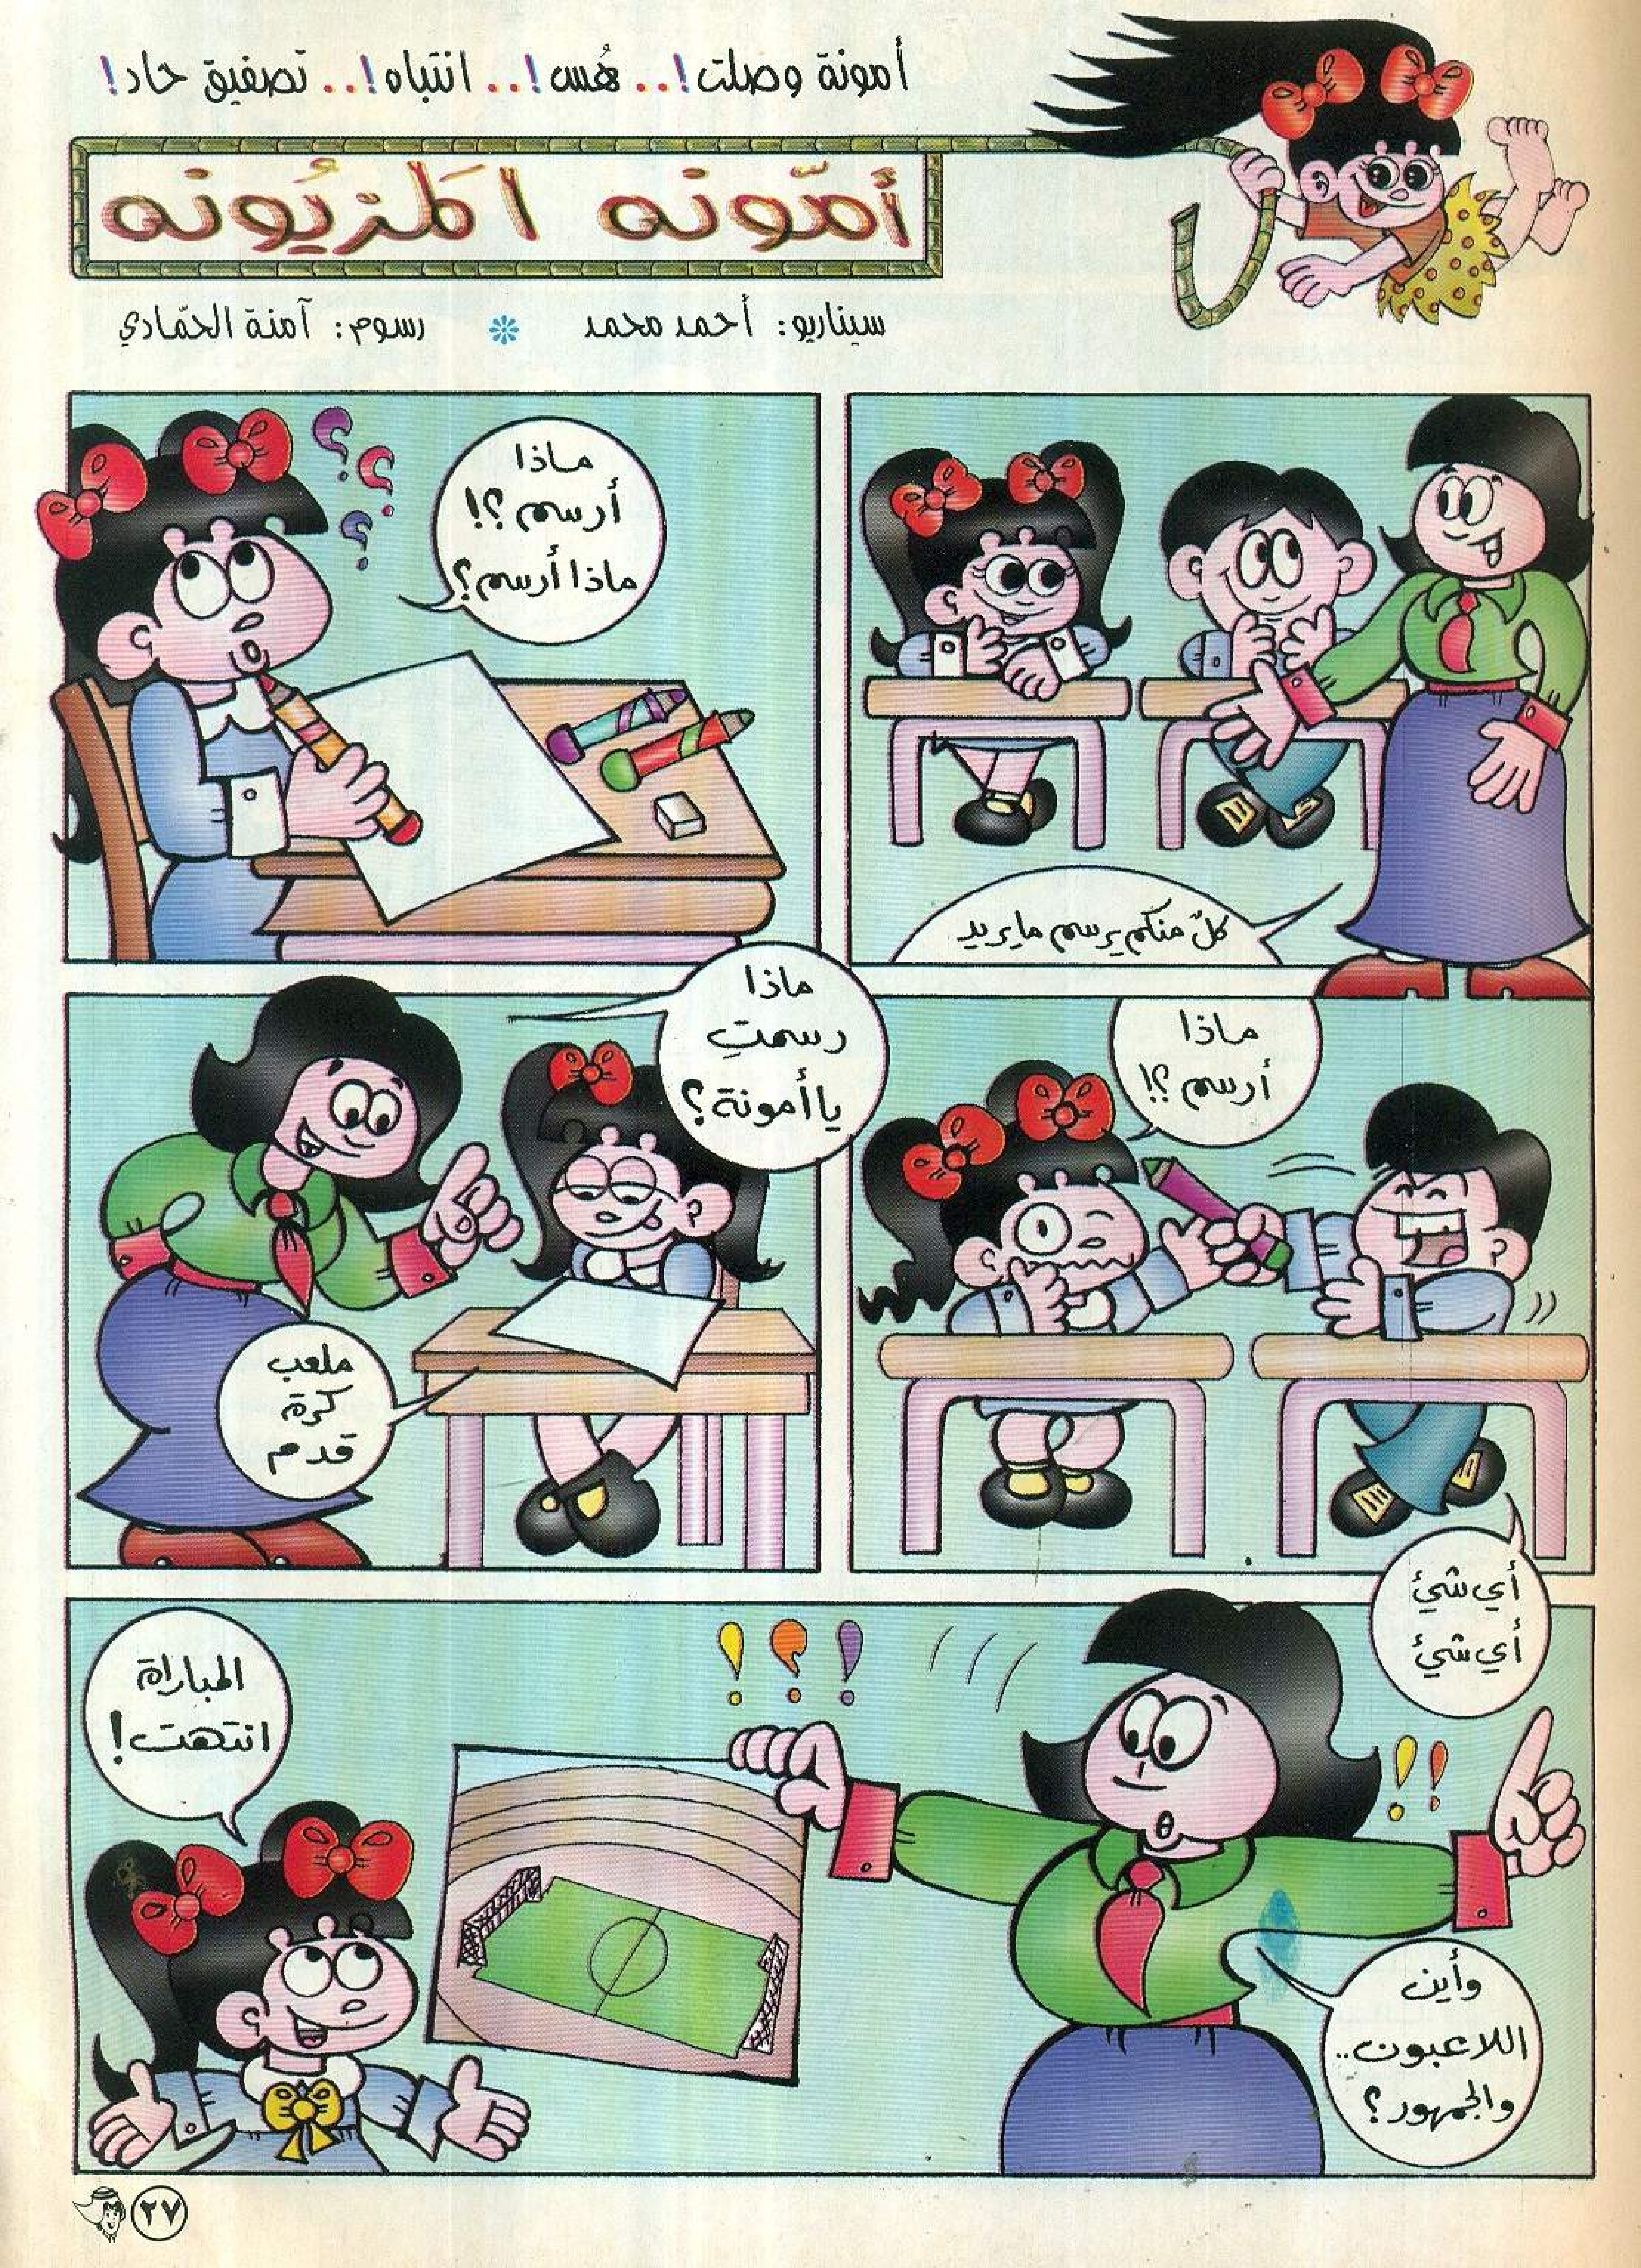 أمونة وصلت!.. هُس!.. انتباه!.. تصفيق حاد!
أمّونه المَزيُونه
سيناريو: أحمد محمد * رسوم: آمنة الحمّادي
كلٌ منكم يرسم ما يريد
ماذا
أرسم؟!
ماذا أرسم؟
ماذا
أرسم؟!
أي شيئ
أي شيئ
ماذا
رسمتِ
يا أمونة؟
ملعب
كرة
قدم
وأين
اللاعبون..
والجمهور؟
المباراة
انتهت!
٢٧